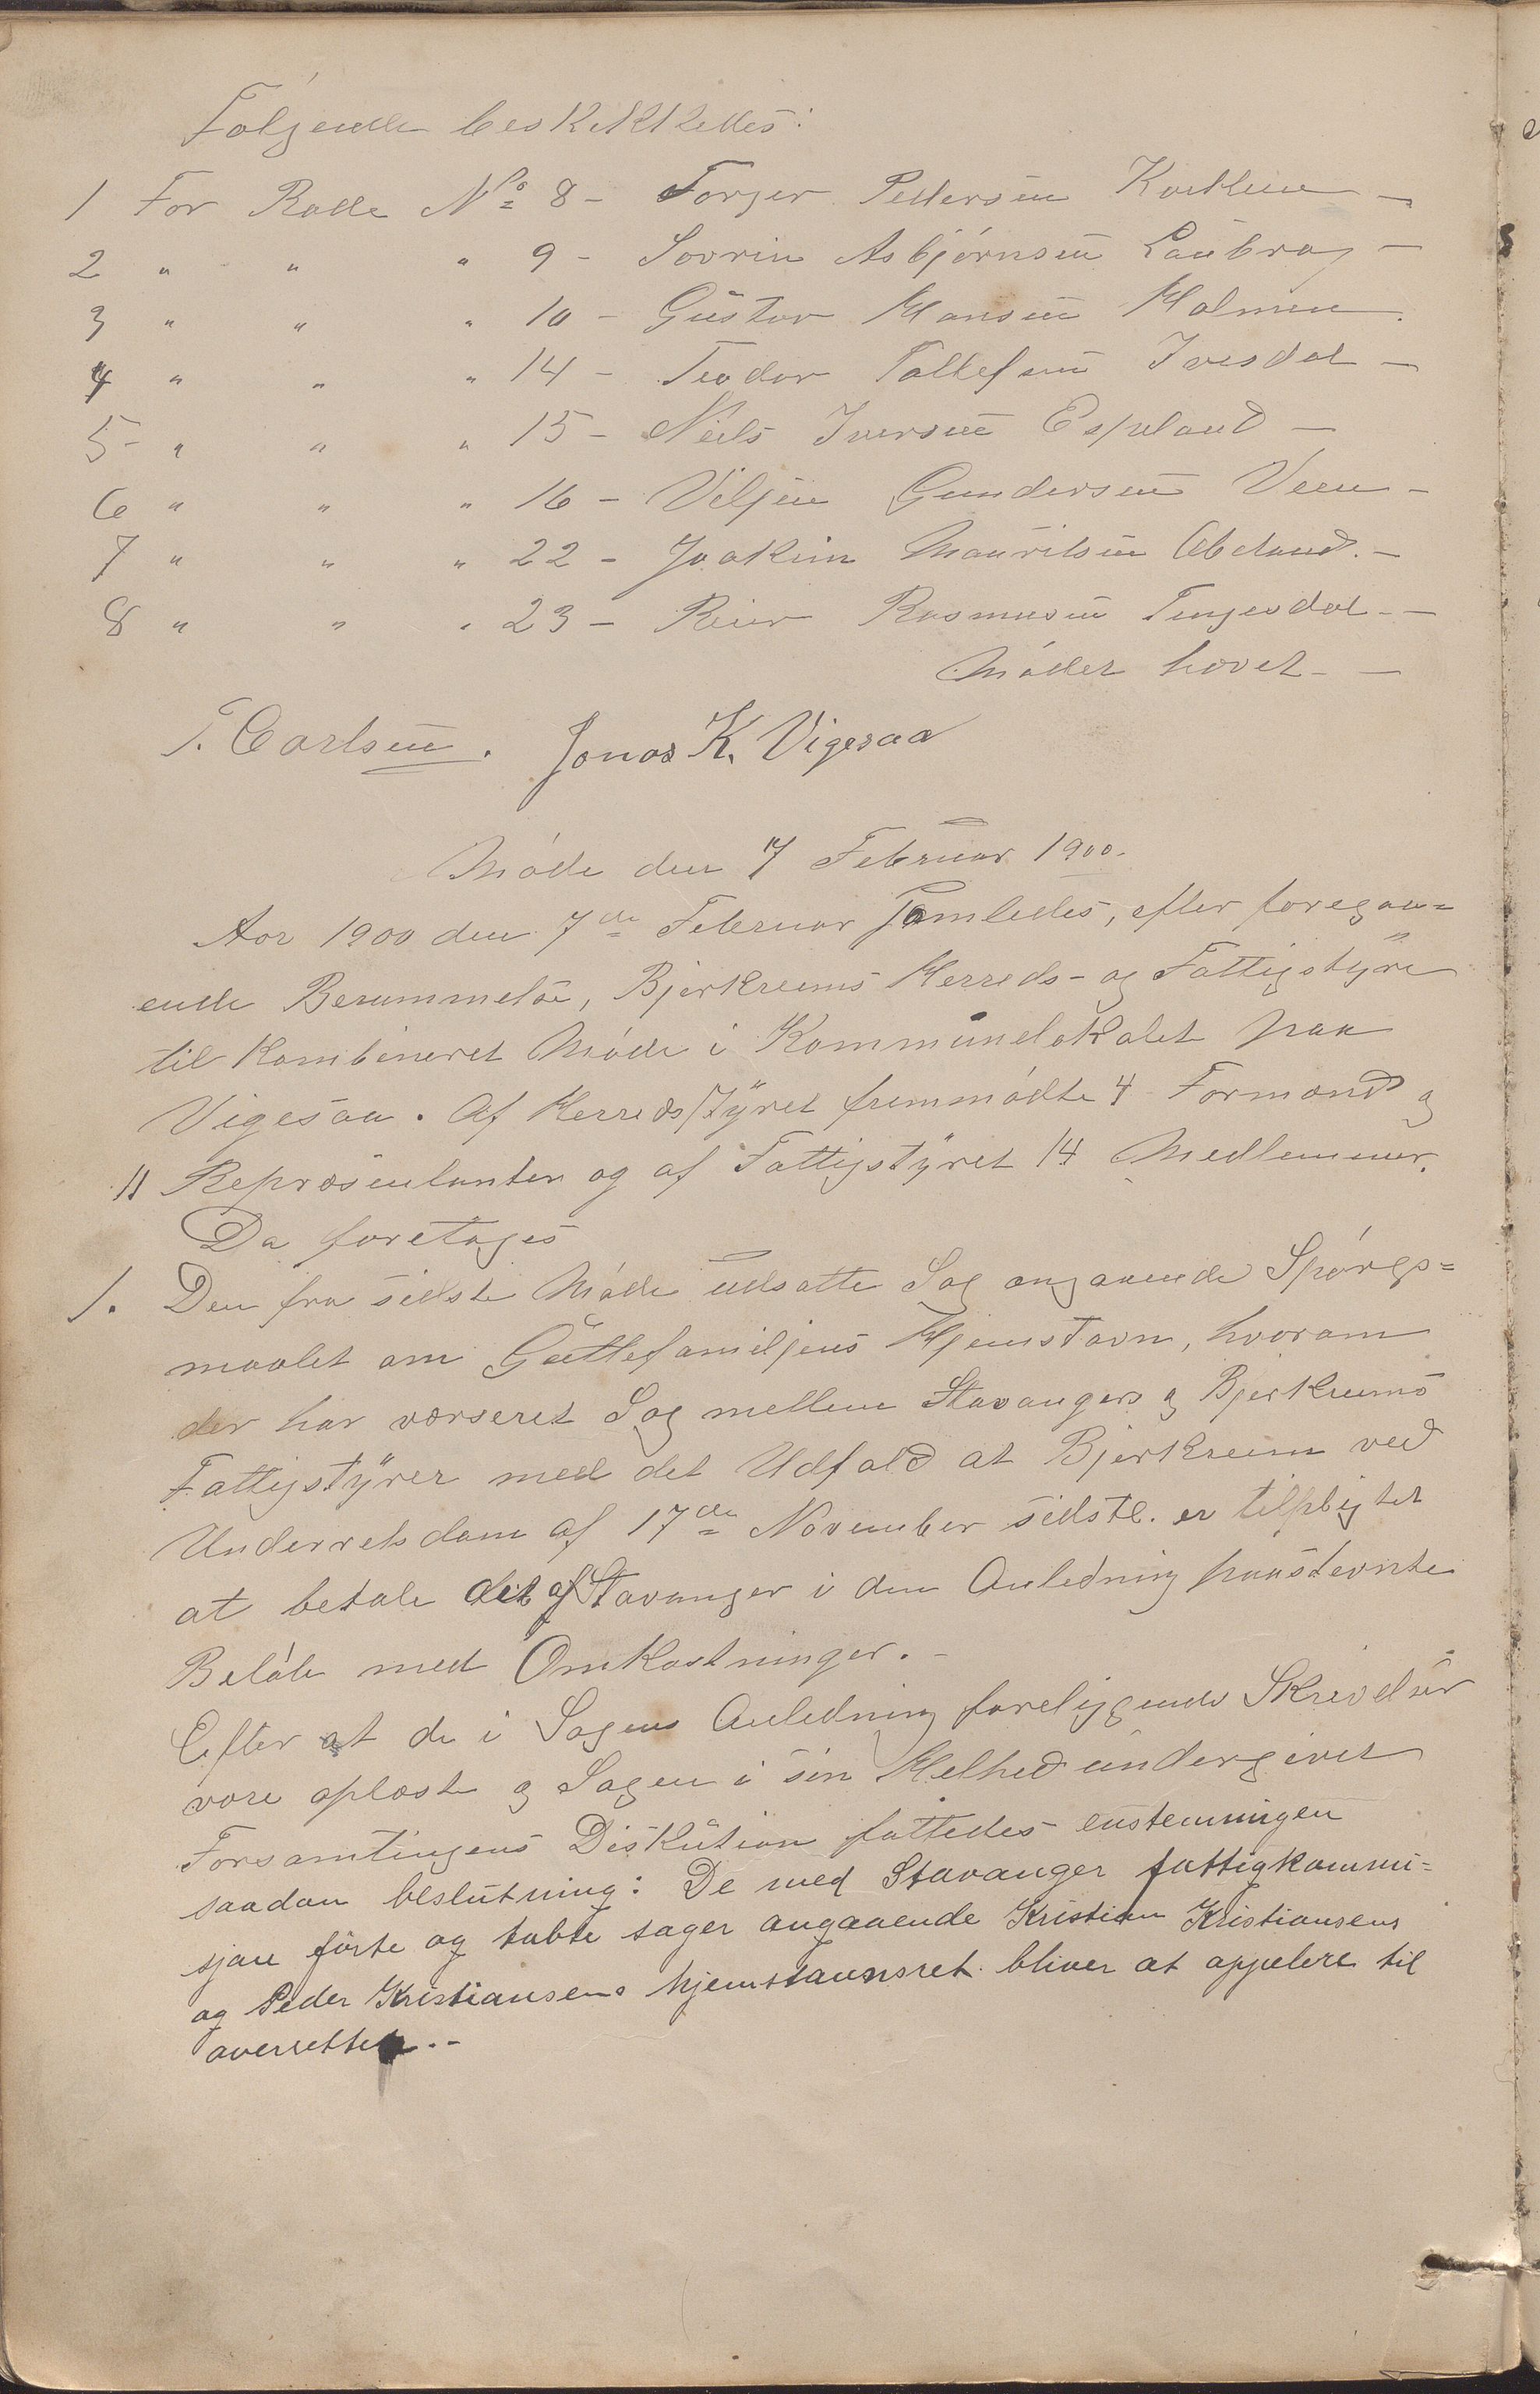 Følgende beskikkedes:
1 For Rode No 8 - Torger Pedersen
2 " " " 9 - Sovrin Asbjørnsen Laubrag -
3 " " " 10 - Gustav Hansen Holmen.
4 " " " 14 - Teodor Tollefsen Ivesdal -
5 - " " " 15 - Nils Iversen Espeland -
6 " " " 16 - Viljen Gundersen Veen -
7 " " " 22 - Joakim Mauritsen Øbeland. -
8 " " " 23 - Reier Rasmusen Tengesdal -
Mødet hævet -
T. Carlsen. Jonas K. Vigesaa
Møde den 7 Februar 1900.
Aar 1900 den 7de Februar samledes, efter foregaa=
ende Berammelse, Bjerkreims Herreds- og Fattigstyre
til kombineret Møde i Kommunelokalet paa
Vigesaa. Af Herredsstyret fremmødte 4 Formænd og
11 Repræsentanter og af Fattigstyret 14 Medlemmer.
Da foretoges
1. Den fra sidste Møde udsatte Sag angaaende Spørgs=
maalet om Gutlefamiljens Hjemstavn, hvorom
der har værseret Sag mellem Stavangers og Bjerkreims
Fattigstyrer med det Udfald at Bjerkreim ved
Underretsdom af 17de November sidstl. er tilpligtet
at betale det af Stavanger i den Anledning paastevnte
Beløb med Omkostninger. -
Efter at de i Sagens Anledning foreliggende Skrivelser
vare oplæste og Sagen i sin Helhed undergivet
Forsamlingens Diskution fattedes enstemmigen
saadan beslutning: De med Stavanger fattigkommi=
sjon førte og tabte sager angaaende Kristian Kristiansens
og Peder Kristiansens hjemstavnsret bliver at appelere til
overretten. -